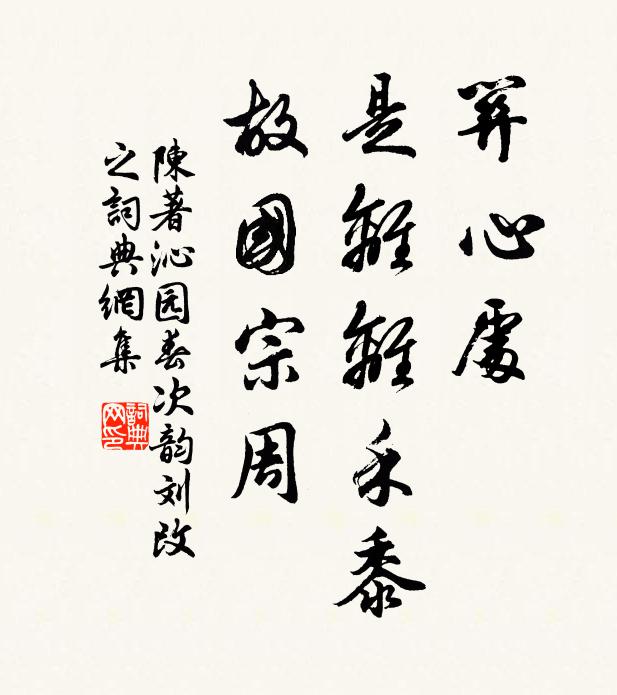 心處
是離離禾黍
故國宗周
陳著沁园春次韵刘改
之詞典網集
詞典
网印